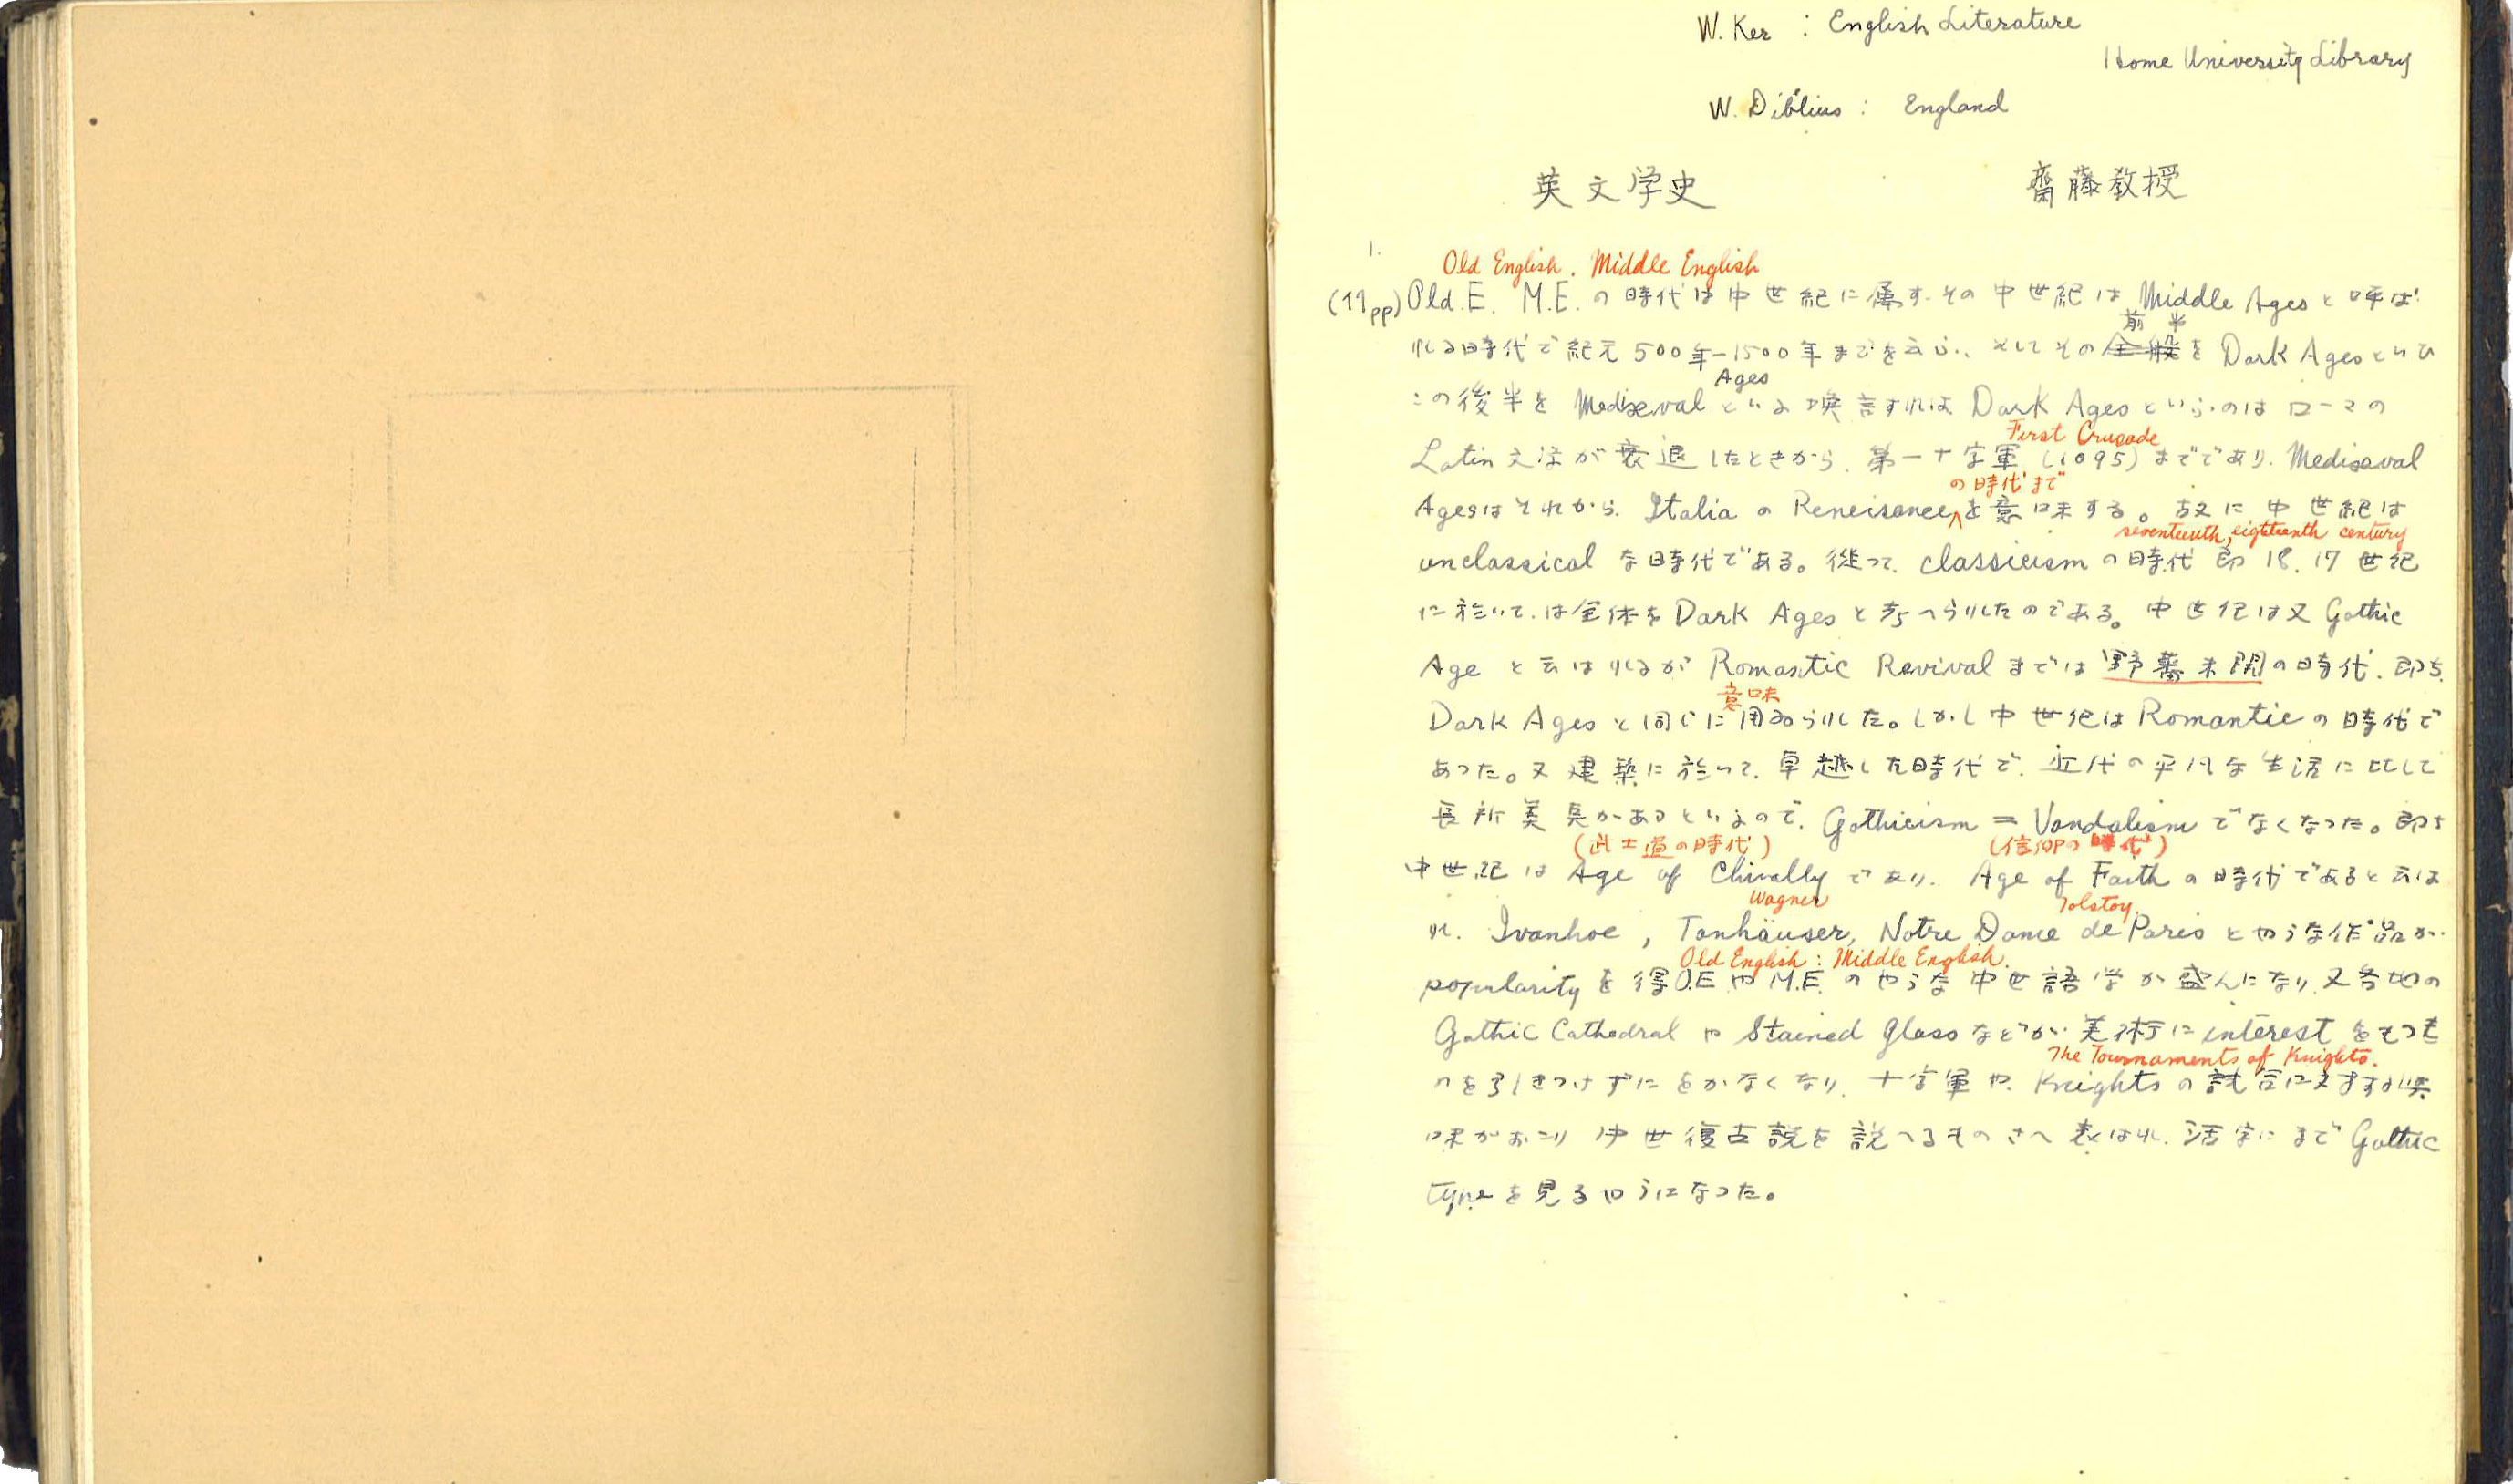 W. Ker : English Literature
Home University Library
W. Diblius : England
英文学史 齋藤教授
1.
Old English. Middle English
(11pp) Old. E. M.E. の時代は中世紀に属す. その中世紀は Middle Ages と呼ば
前半
れる時代で紀元 500年-1500年までを云ふ、そしてその全般を Dark Ages といひ
Ages
この後半を Mediaeval といふ 換言すれば Dark Ages といふのは ローマの
First Crusade
Latin 文学が衰退したときから. 第一十字軍 (1095) までであり. Mediaeval
の時代まで
Agesはそれから. Italia の Reneisance を意味する。故に中世紀は
seventeenth, eighteenth century
unclassical な時代である。従って. classicism の時代 即 18. 17 世紀
に於いて. は全体を Dark Ages と考へられたのである。中世紀は又 Gothic
Age と云はれるが Romantic Revival までは 野蕃未開の時代. 即ち.
意味
Dark Ages と同じに用ゐられた。しかし中世紀は Romantic の時代で
あつた。又建築に於いて. 卓越した時代で. 近代の平凡な生活に比して
長所美点があるといふので. Gothicism = Vandalism でなくなつた。即ち
(武士道の時代) (信仰の時代)
中世紀は Age of Chivally であり. Age of Faith の時代であると云は
Wagner Tolstoy
れ. Ivanhoe , Tanhäuser, Notre Dame de Paris とやうな作品が
Old English : Middle English.
popularity を得 O.E や M.E. のやうな中世語学が盛んになり 又各地の
Gothic Cathedral や Stained Glass などが 美術に interest をもつも
The Tournaments of Knights.
のを引きつけずにをかなくなり. 十字軍や. Knights の試合に対する興
味がおこり 中世復古説を説へるものさへ表はれ. 活字にまで Gothic
type を見るやうになつた。